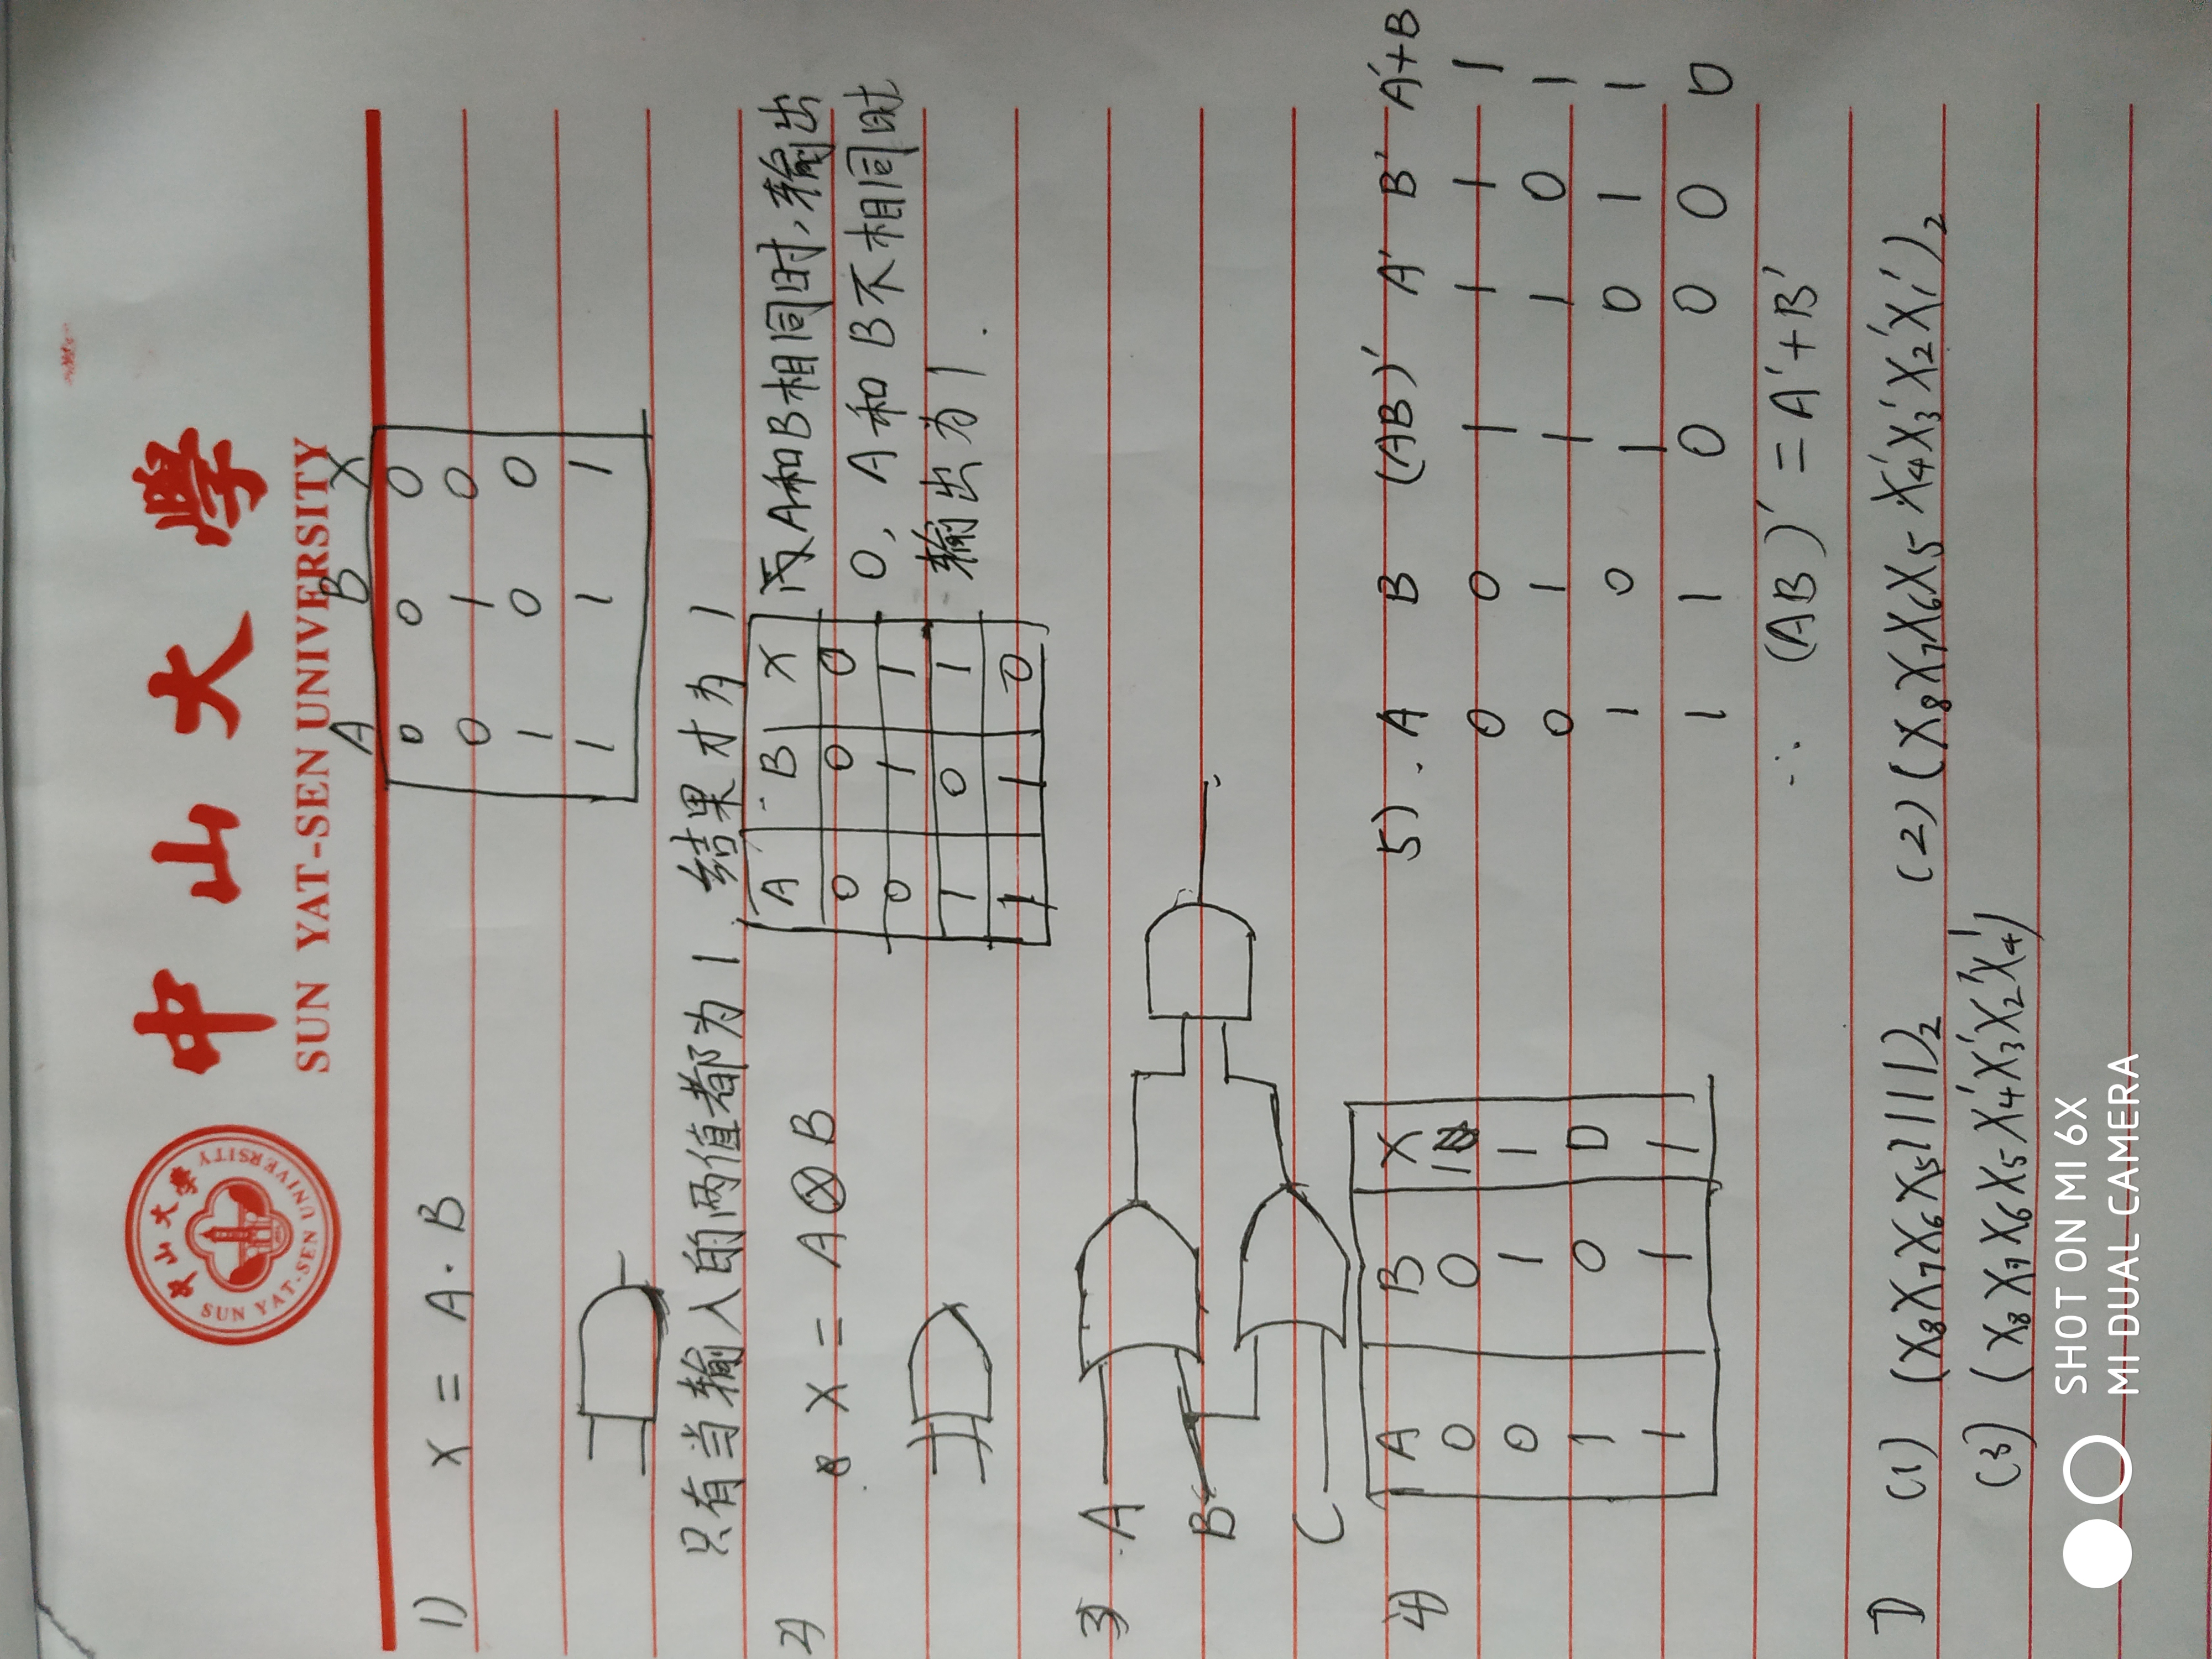 中山大學
SUN YAT-SEN UNIVERSITY
中山大學
SUN YAT-SEN UNIVERSITY
A B X
0 0 0
0 1 0
1 0 0
1 1 1
1) X = A · B
只有当输入的两值都为1, 结果才为1
2) X = A⊗B
A B X
0 0 0
0 1 1
1 0 1
1 1 0
A和B相同时,输出
0, A和B不相同时
输出为1.
3) A
B
C
4) A B X
0 0 1
0 1 1
1 0 0
1 1 1
5). A B (AB)' A' B' A'+B
0 0 1 1 1 1
0 1 1 1 0 1
1 0 1 0 1 1
1 1 0 0 0 0
∴ (AB)' = A'+B'
(1) (X₈X₇X₆X₅1111)₂ (2) (X₈X₇X₆X₅X₄'X₃'X₂'X₁')₂
(3) (X₈X₇X₆X₅X₄'X₃'X₂'X₄')
SHOT ON MI 6X
MI DUAL CAMERA